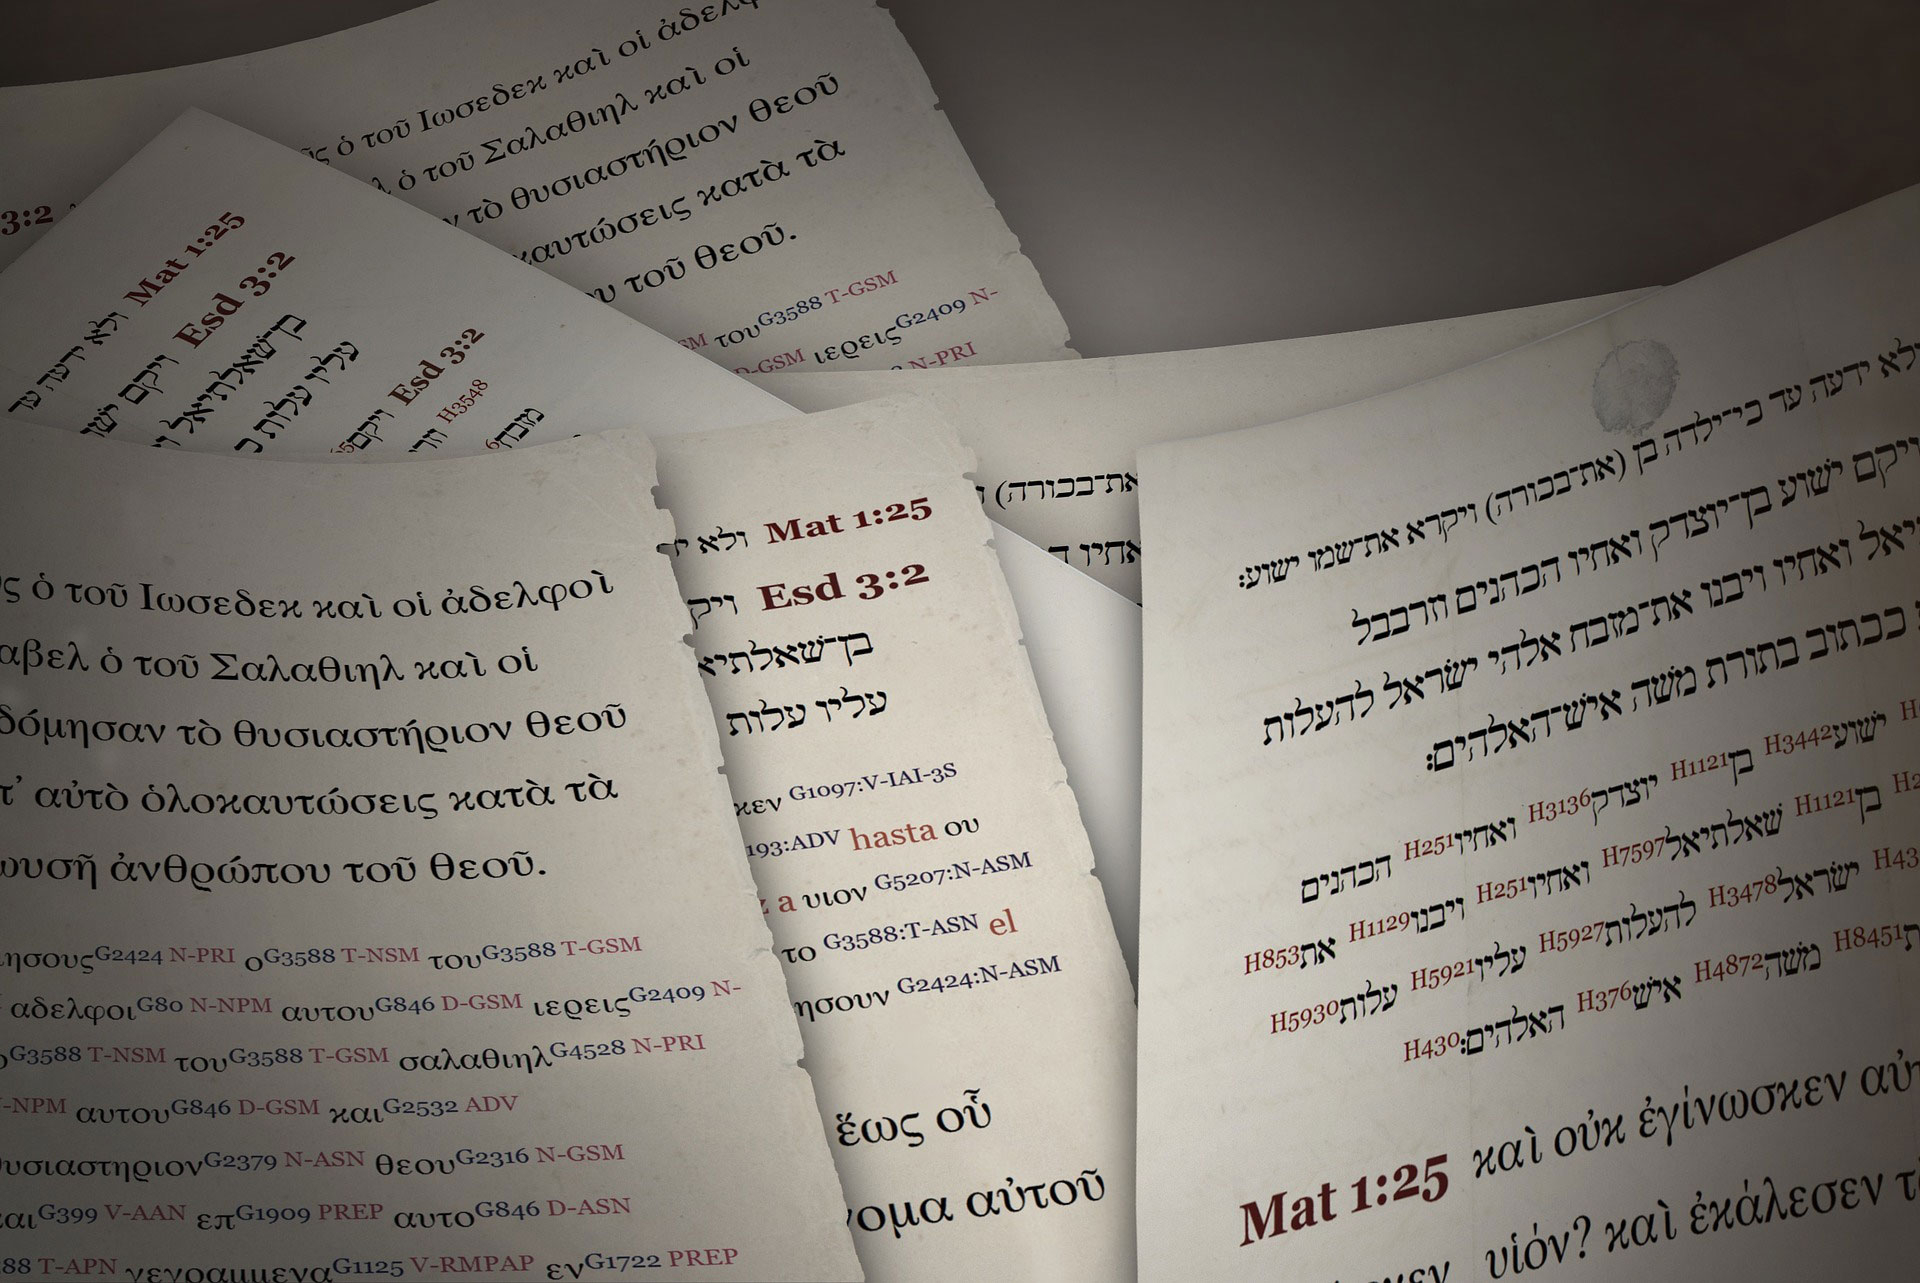 ὁ τοῦ Ιωσεδεκ καὶ οἱ
ὁ τοῦ Σαλαθιηλ καὶ οἱ
τὸ θυσιαστήριον θεοῦ
κατὰ τὰ
τοῦ θεοῦ.
τουG3588 T-GSM
D-GSM ιερειςG2409 N-
N-PRI
3:2
Mat 1:25 ולא ידעה עד
Esd 3:2 ויקם
בן־שאלתיאל
עליו עלות
Esd 3:2 ויקם
H3548
מזבח
את־בכורה)
ὁ τοῦ Ιωσεδεκ καὶ οἱ ἀδελφοὶ
ὁ τοῦ Σαλαθιηλ καὶ οἱ
τὸ θυσιαστήριον θεοῦ
αὐτὸ ὁλοκαυτώσεις κατὰ τὰ
ἀνθρώπου τοῦ θεοῦ.
ησουςG2424 N-PRI οG3588 T-NSM τουG3588 T-GSM
αδελφοιG80 N-NPM αυτουG846 D-GSM ιερειςG2409 N-
οG3588 T-NSM τουG3588 T-GSM σαλαθιηλG4528 N-PRI
-NPM αυτουG846 D-GSM καιG2532 ADV
υσιαστηριονG2379 N-ASN θεουG2316 N-GSM
αιG399 V-AAN επιG1909 PREP αυτοG846 D-ASN
88 T-APN γεγραμμεναG1125 V-RMPAP ενG1722 PREP
Mat 1:25 ולא
Esd 3:2
בן־שאלתיא
עליו עלות
κεν G1097:V-IAI-3S
193:ADV hasta ου
a υιον G5207:N-ASM
το G3588:T-ASN el
ησουν G2424:N-ASM
ἕως οὗ
νομα αὐτοῦ
ולא ידעה עד כי־ילדה בן (את־בכורה) ויקרא את־שמו ישוע:
ויקם ישוע בן־יוצדק ואחיו הכהנים וזרבבל
ואחיו ויבנו את־מזבח אלהי ישראל להעלות
ככתוב בתורת משה איש־האלהים:
ישועH3442 בןH1121 יוצדקH3136 ואחיוH251 הכהנים
בןH1121 שאלתיאלH7597 ואחיוH251 ויבנוH1129 אתH853
ישראלH3478 להעלותH5927 עליוH5921 עלותH5930
H8451 משהH4872 אישH376 האלהים:H430
Mat 1:25 καὶ οὐκ ἐγίνωσκεν
υἱόν? καὶ ἐκάλεσεν